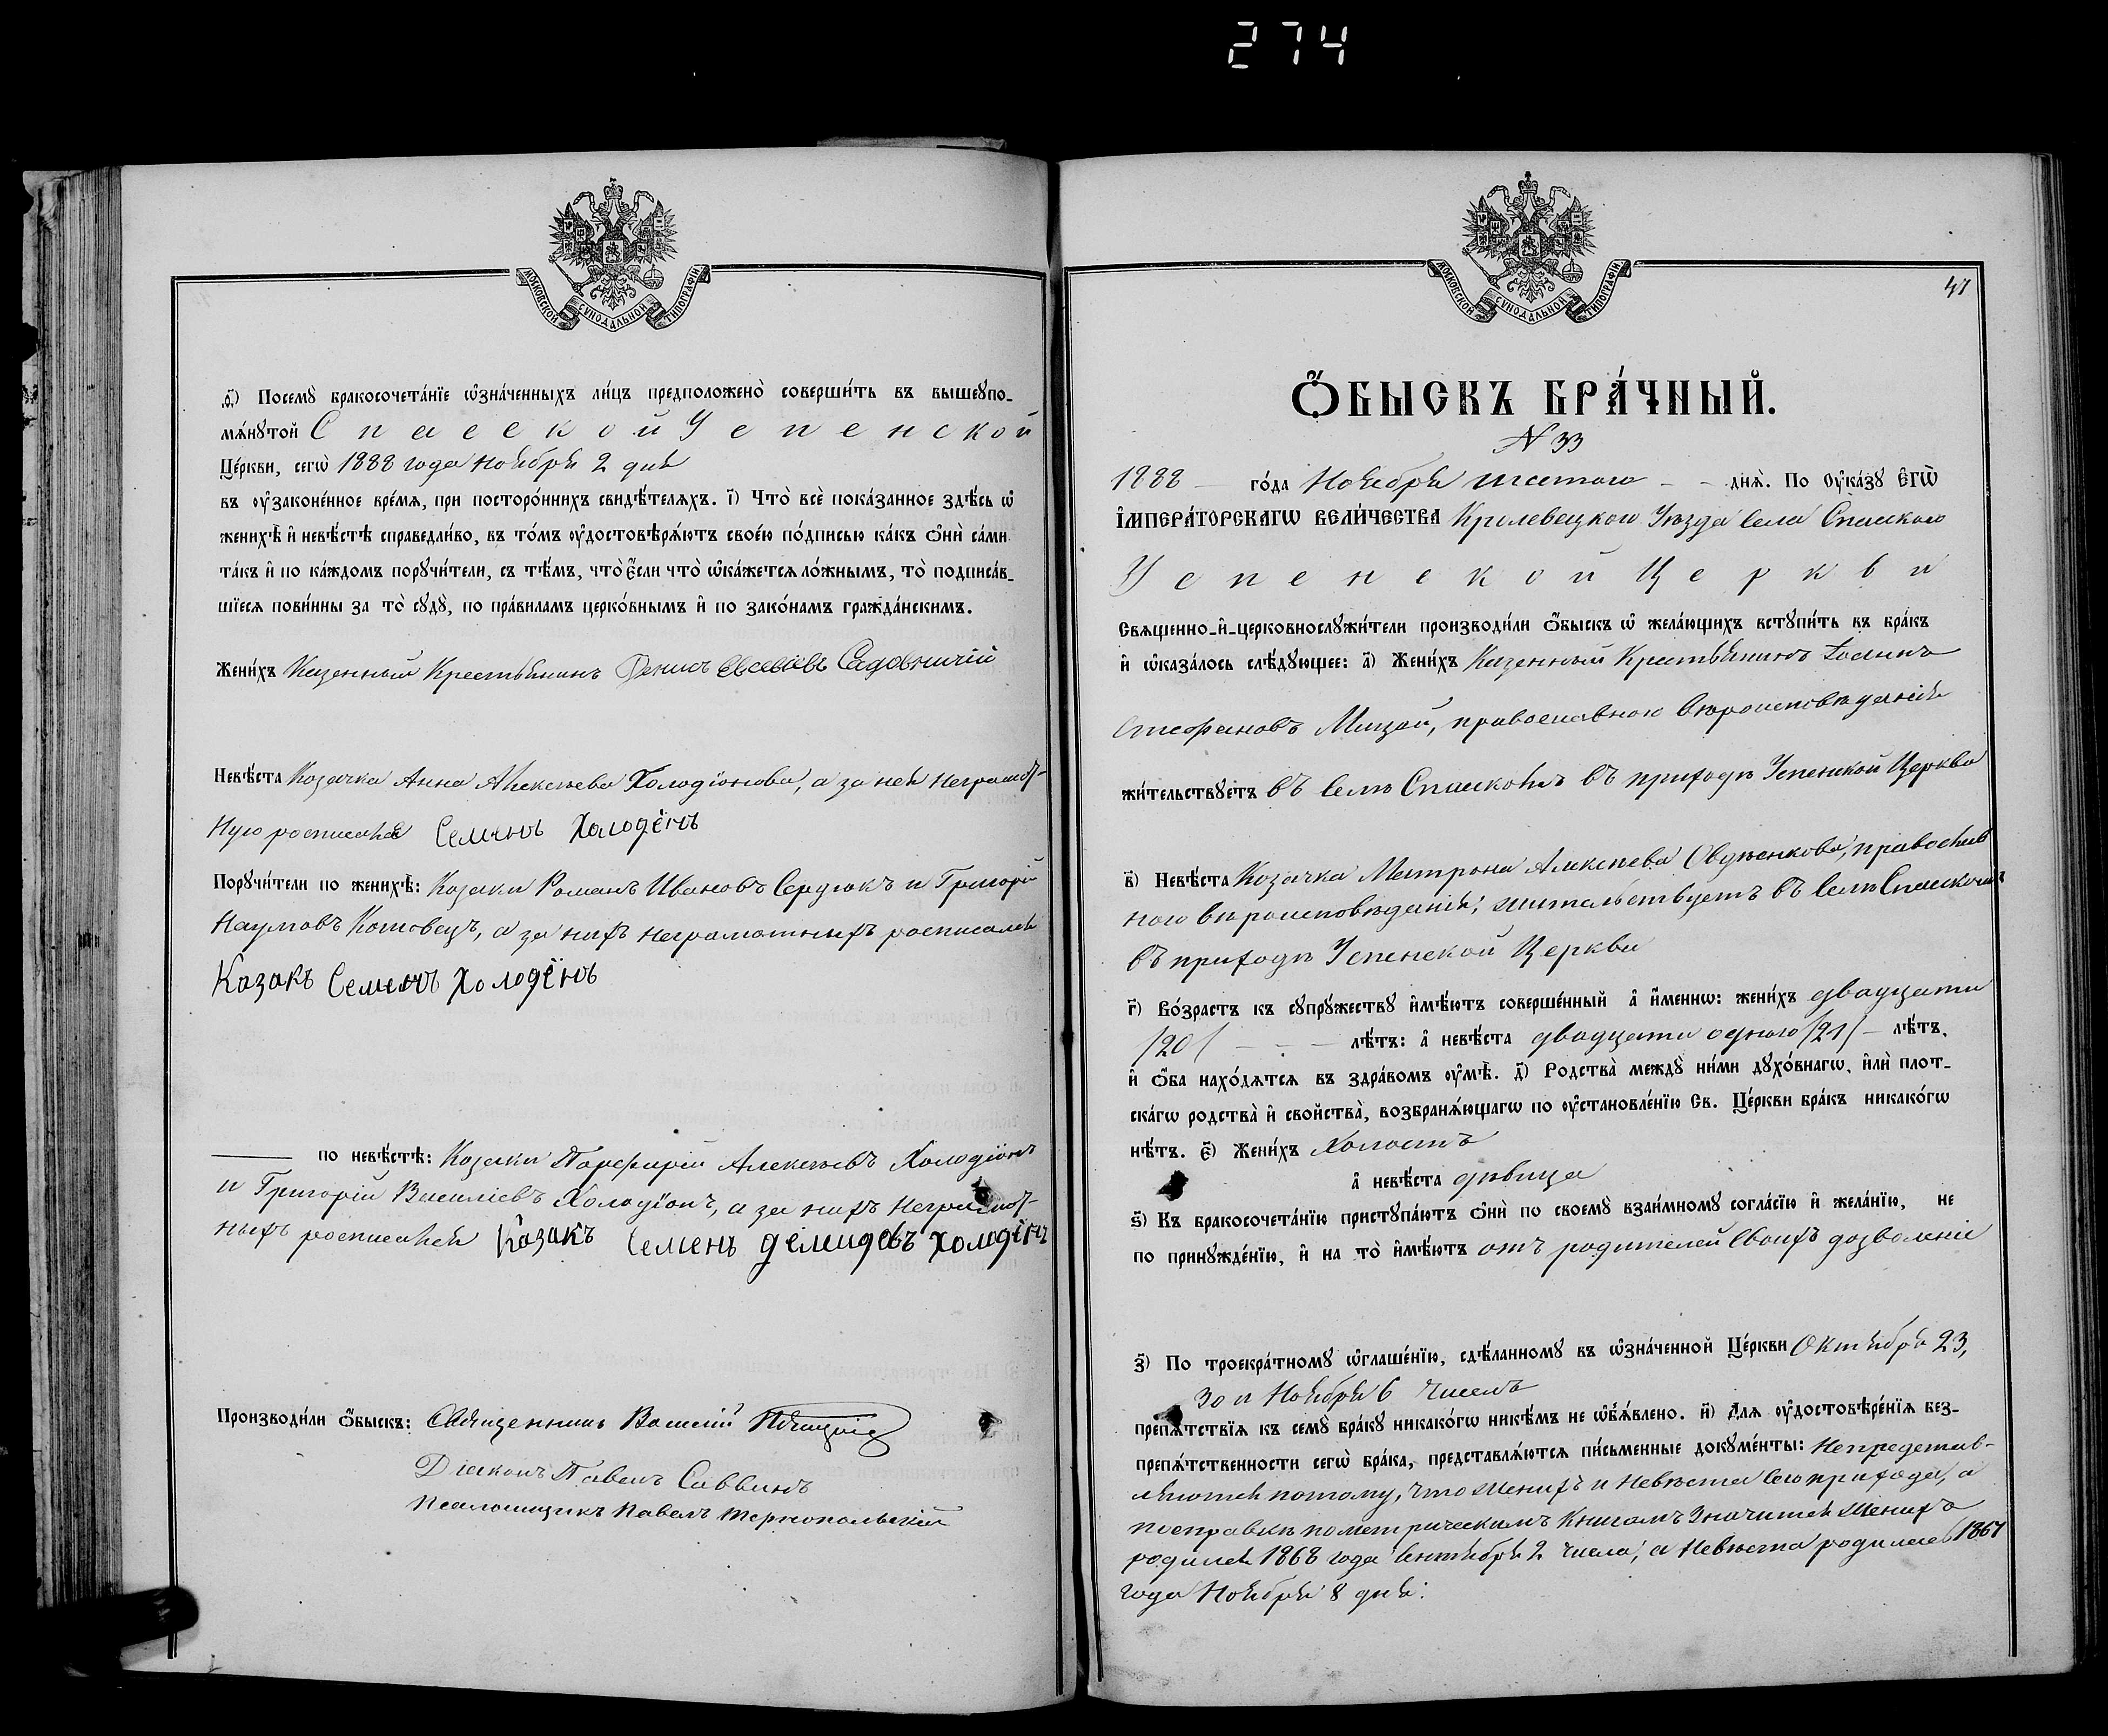 274
МОСКОВСКОЙ СѴНОДАЛЬНОЙ ТИПОГРАФІИ
ѳ҃) Посемꙋ̀ бракосочета́нїе ѡ҆зна́ченныхъ ли́цъ предположено̀ соверши́ть въ вышеꙋпо-
мѧ́нꙋтой Спасской Успенской
Це́ркви, сегѡ̀ 1888 года Ноября 2 дня
въ ᲂу҆законе́нное вре́мѧ, при посторо́ннихъ свидѣ́телѧхъ. і҃) Что̀ всѐ пока́занное здѣ́сь ѡ҆
женихѣ̀ и҆ невѣ́стѣ справедли́во, въ то́мъ ᲂу҆достовѣрѧ́ютъ свое́ю по́дписью ка́къ ѻ҆нѝ са́ми
та́къ и҆ по ка́ждомъ порꙋчи́тели, съ тѣ́мъ, что̀ є҆́сли что̀ ѡ҆ка́жетсѧ ло́жнымъ, то̀ подписа́в-
шїесѧ пови́нны за то̀ сꙋдꙋ̀, по пра́виламъ церко́внымъ и҆ по зако́намъ гражда́нскимъ.
Жени́хъ Казенный Крестьянинъ Денисъ Евсевіевъ Садовничій
Невѣ́ста Козачка Анна Алексѣева Холодіонова, а за нея неграмот-
ную росписался Семенъ Холодёнъ
Порꙋчи́тели по женихѣ̀: Козаки Романъ Ивановъ Сердюкъ и Григорій
Наумовъ Котовецъ, а за нихъ неграмотныхъ росписался
Казакъ Семенъ Холодёнъ
по невѣ́стѣ: Козаки Парфирій Алексѣевъ Холодіонъ
и Григорій Василіевъ Холодіонъ, а за нихъ неграмот-
ныхъ росписался Казакъ Семенъ Демидовъ Холодёнъ
Производи́ли ѻ҆́быскъ: Священникъ Василій
Діаконъ Павелъ Саввинъ
Псаломщикъ Павелъ Тернопольскій
МОСКОВСКОЙ СѴНОДАЛЬНОЙ ТИПОГРАФІИ
47
Ѻ҆́БЫСКЪ БРА́ЧНЫЙ.
N 33
1888 — го́да Ноября шестого — — днѧ̀. По ᲂу҆ка́зꙋ Є҆ГѠ̀
І҆МПЕРА́ТОРСКАГѠ ВЕЛИ́ЧЕСТВА Кролевецкого Уѣзда Села Спаского
Успенской Церкви
Свѧщенно-и҆-церковнослꙋжи́тели производи́ли ѻ҆́быскъ ѡ҆ жела́ющихъ встꙋпи́ть въ бра́къ
и҆ ѡ҆каза́лось слѣ́дꙋющее: а҃) Жени́хъ Казенный Крестьянинъ Іоаннъ
Стефановъ Мизой, православного вѣроисповѣданія
жи́тельствꙋетъ въ Селѣ Спаскомъ въ приходѣ Успенской Церкви
в҃) Невѣ́ста Козачка Матрона Алексѣева Овдѣенкова, православ
ного вѣроисповѣданія, жительствуетъ въ Селѣ Спаскомъ
въ приходѣ Успенской Церкви
г҃) Во́зрастъ къ сꙋпрꙋ́жествꙋ и҆мѣ́ютъ соверше́нный а҆ и҆́меннѡ: жени́хъ двадцати
/20/ — — — лѣ́тъ: а҆ невѣ́ста двадцати одного /21/ — лѣ́тъ,
и҆ ѻ҆́ба нахо́дѧтсѧ въ здра́вомъ ᲂу҆мѣ̀. д҃) Родства̀ междꙋ̀ ни́ми дꙋхо́внагѡ, и҆лѝ плот-
ска́гѡ родства̀ и҆ свойства̀, возбранѧ́ющагѡ по ᲂу҆становле́нїю Св. Це́ркви бра́къ никако́гѡ
нѣ́тъ. є҃) Жени́хъ Холостъ
а҆ невѣ́ста дѣвица
ѕ҃) Къ бракосочета́нїю пристꙋпа́ютъ ѻ҆нѝ по своемꙋ̀ взаи́мномꙋ согла́сїю и҆ жела́нїю, не
по принꙋжде́нїю, и҆ на то̀ и҆мѣ́ютъ отъ родителей своихъ дозволеніе
з҃) По троекра́тномꙋ ѡ҆глаше́нїю, сдѣ́ланномꙋ въ ѡ҆зна́ченной Це́ркви Октября 23,
30 и Ноября 6 чиселъ
препѧ́тствїѧ къ семꙋ̀ бра́кꙋ никако́гѡ никѣ́мъ не ѡ҆б̾ѧ́влено. и҃) Длѧ ᲂу҆достовѣре́нїѧ без-
препѧ́тственности сегѡ̀ бра́ка, представлѧ́ютсѧ пи́сьменные докꙋме́нты: Непредстав-
ляются потому, что Женихъ и Невѣста Сего прихода, а
посправкѣ пометрическимъ книгамъ значится Женихъ
родился 1868 года Сентября 2 числа, а Невѣста родилась 1867
года Ноября 8 дня.